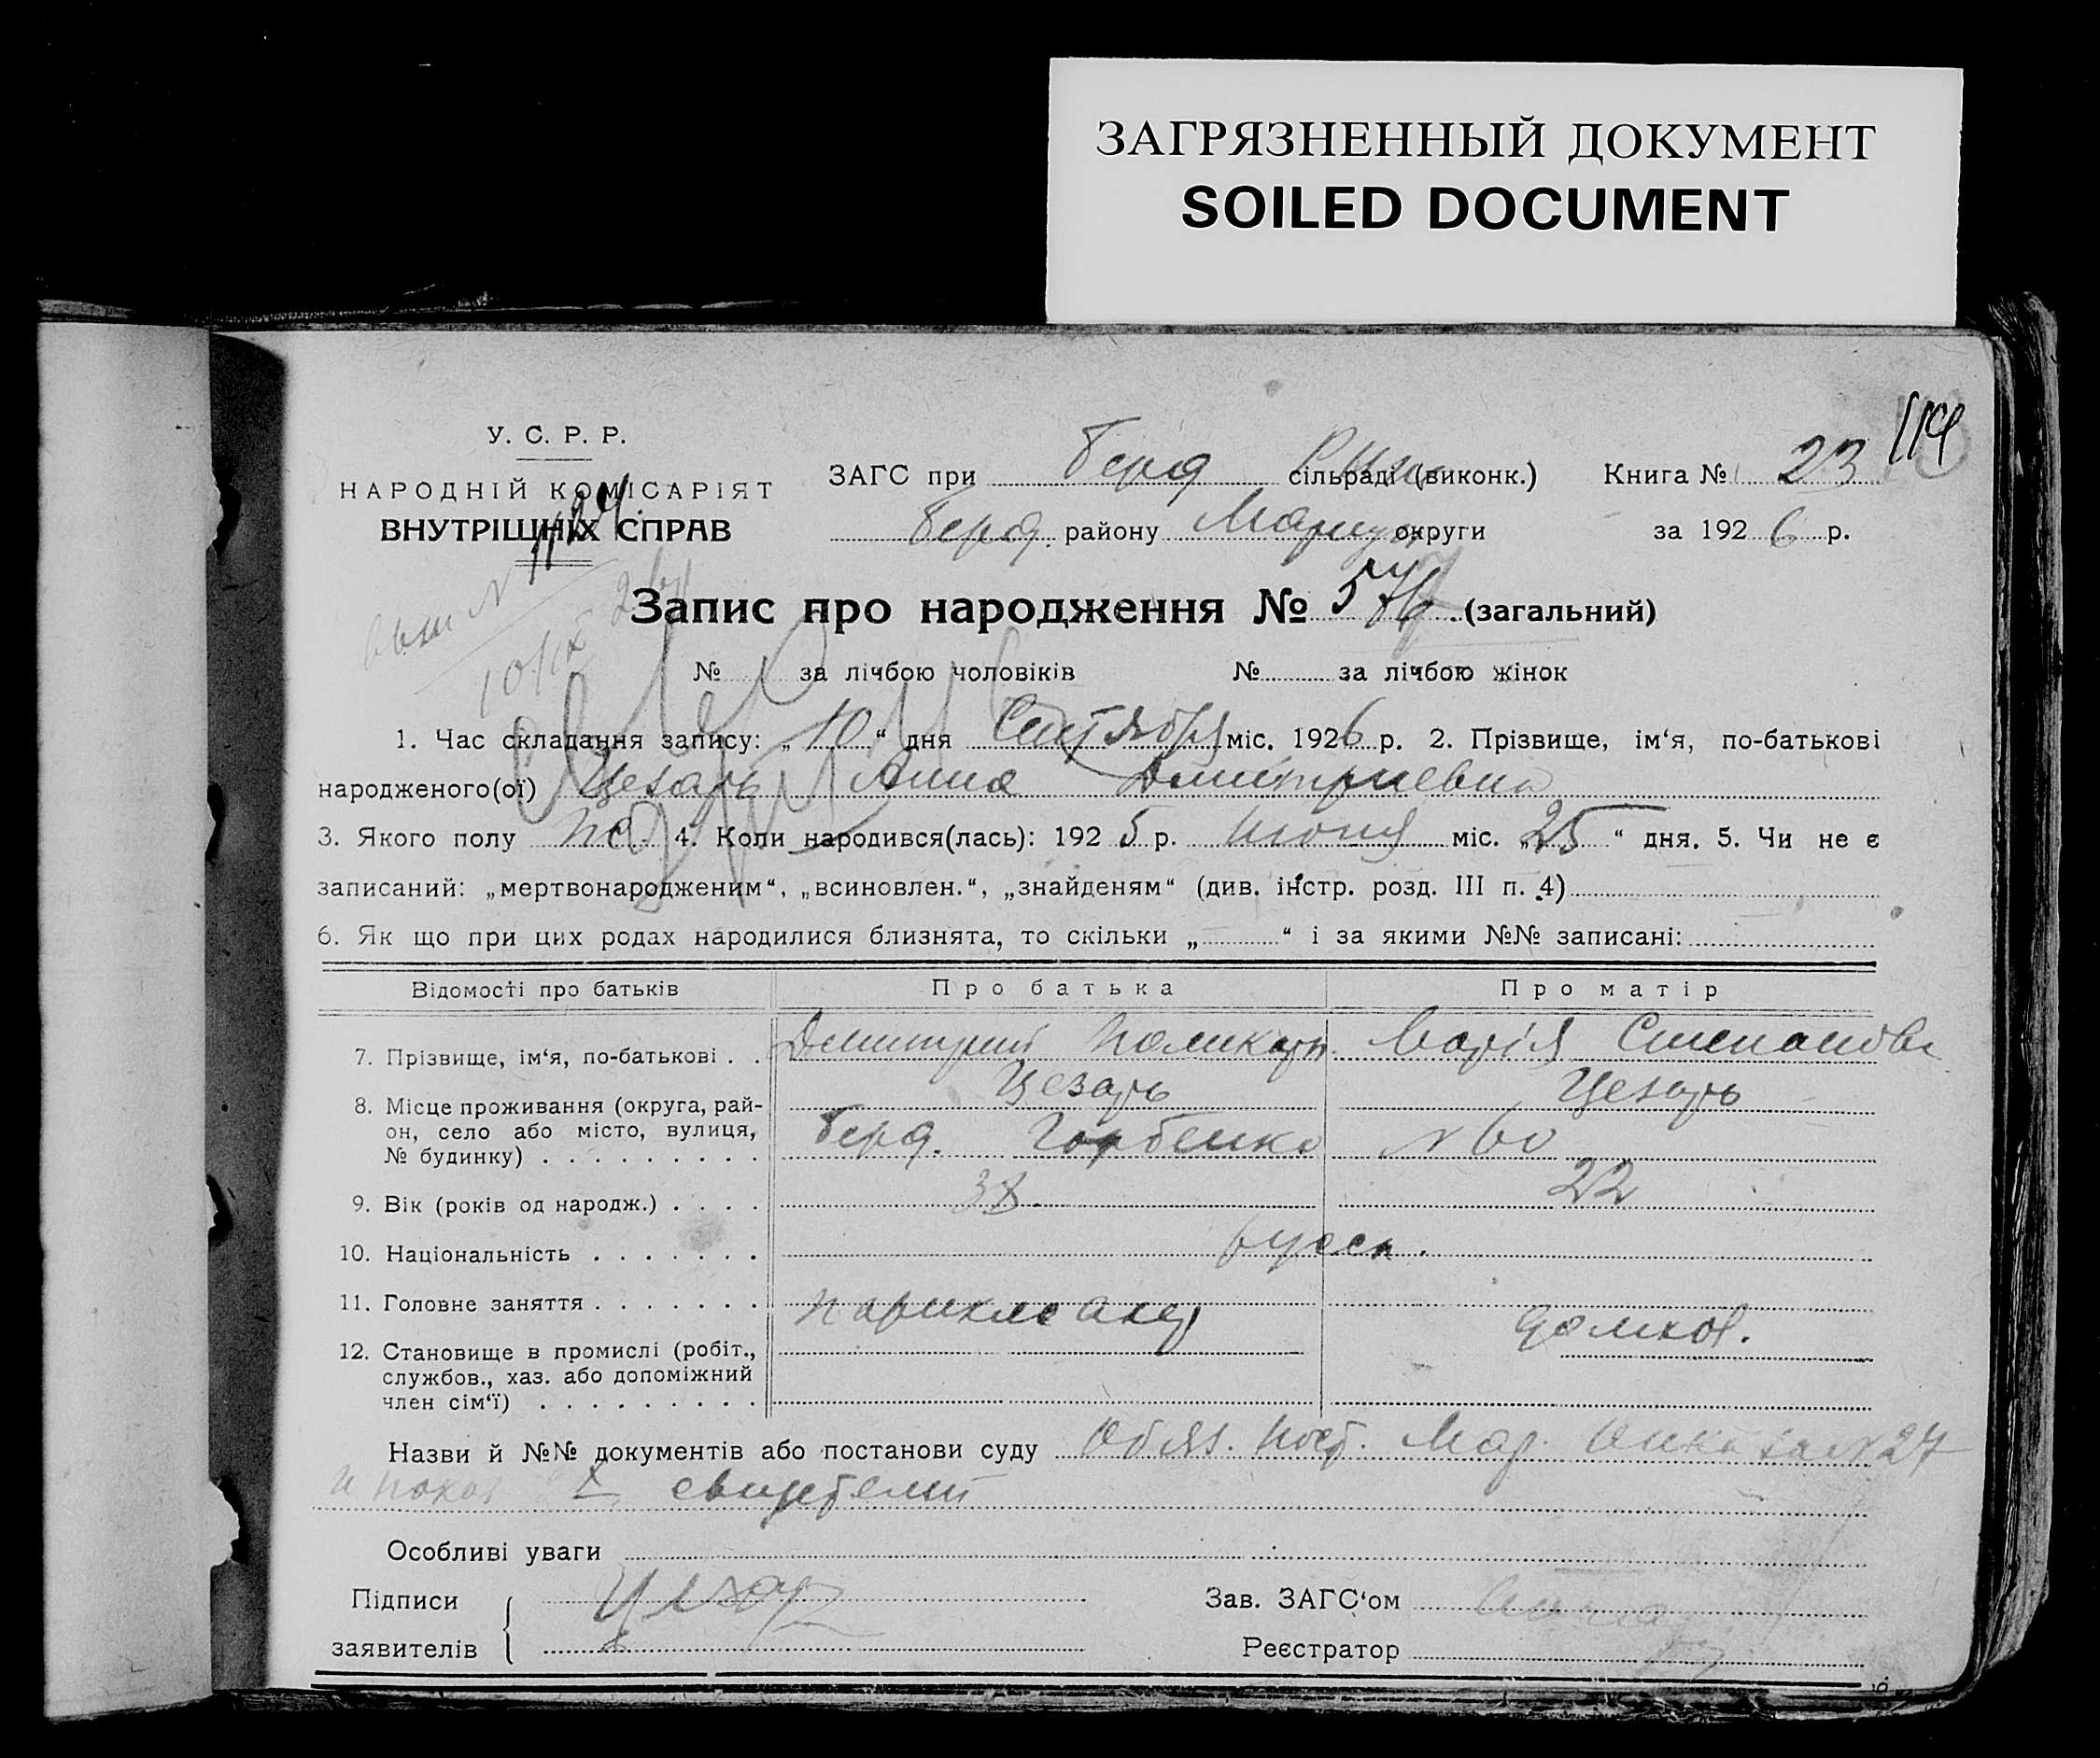 ЗАГРЯЗНЕННЫЙ ДОКУМЕНТ
SOILED DOCUMENT
114
У. С. Р. Р.
НАРОДНІЙ КОМІСАРІЯТ
ВНУТРІШНІХ СПРАВ
ЗАГС при Берд Рик сільраді (виконк.) Книга № 23
Берд. району Мариуп округи за 1926 р.
Запис про народження № 576 (загальний)
№ за лічбою чоловіків № за лічбою жінок
1. Час складання запису: „10“ дня Сентября міс. 1926 р. 2. Прізвище, ім‘я, по-батькові
народженого(ої) Цезарь Анна Дмитриевна
3. Якого полу 4. Коли народився(лась): 1925 р. Июня міс. „25“ дня. 5. Чи не є
записаний: „мертвонародженим“, „всиновлен.“, „знайденям“ (див. інстр. розд. III п. 4)
6. Як що при цих родах народилися близнята, то скільки „ “ і за якими №№ записані:
Відомості про батьків Про батька Про матір
7. Прізвище, ім‘я, по-батькові . . Дмитрий Поликарп. Марія Степановн
Цезарь Цезарь
8. Місце проживання (округа, рай-
он, село або місто, вулиця,
№ будинку) . . . . . . . . . Берд. Горбенко № 60
9. Вік (років од народж.) . . . . 38. 22
10. Національність . . . . . . . русск.
11. Головне заняття . . . . . . . домхоз.
12. Становище в промислі (робіт.,
службов., хаз. або допоміжний
член сім‘ї) . . . . . . . . .
Назви й №№ документів або постанови суду Обяз. пост. Мар. за № 27
и показ свидетелей
Особливі уваги
Підписи
заявителів
Зав. ЗАГС‘ом
Реєстратор